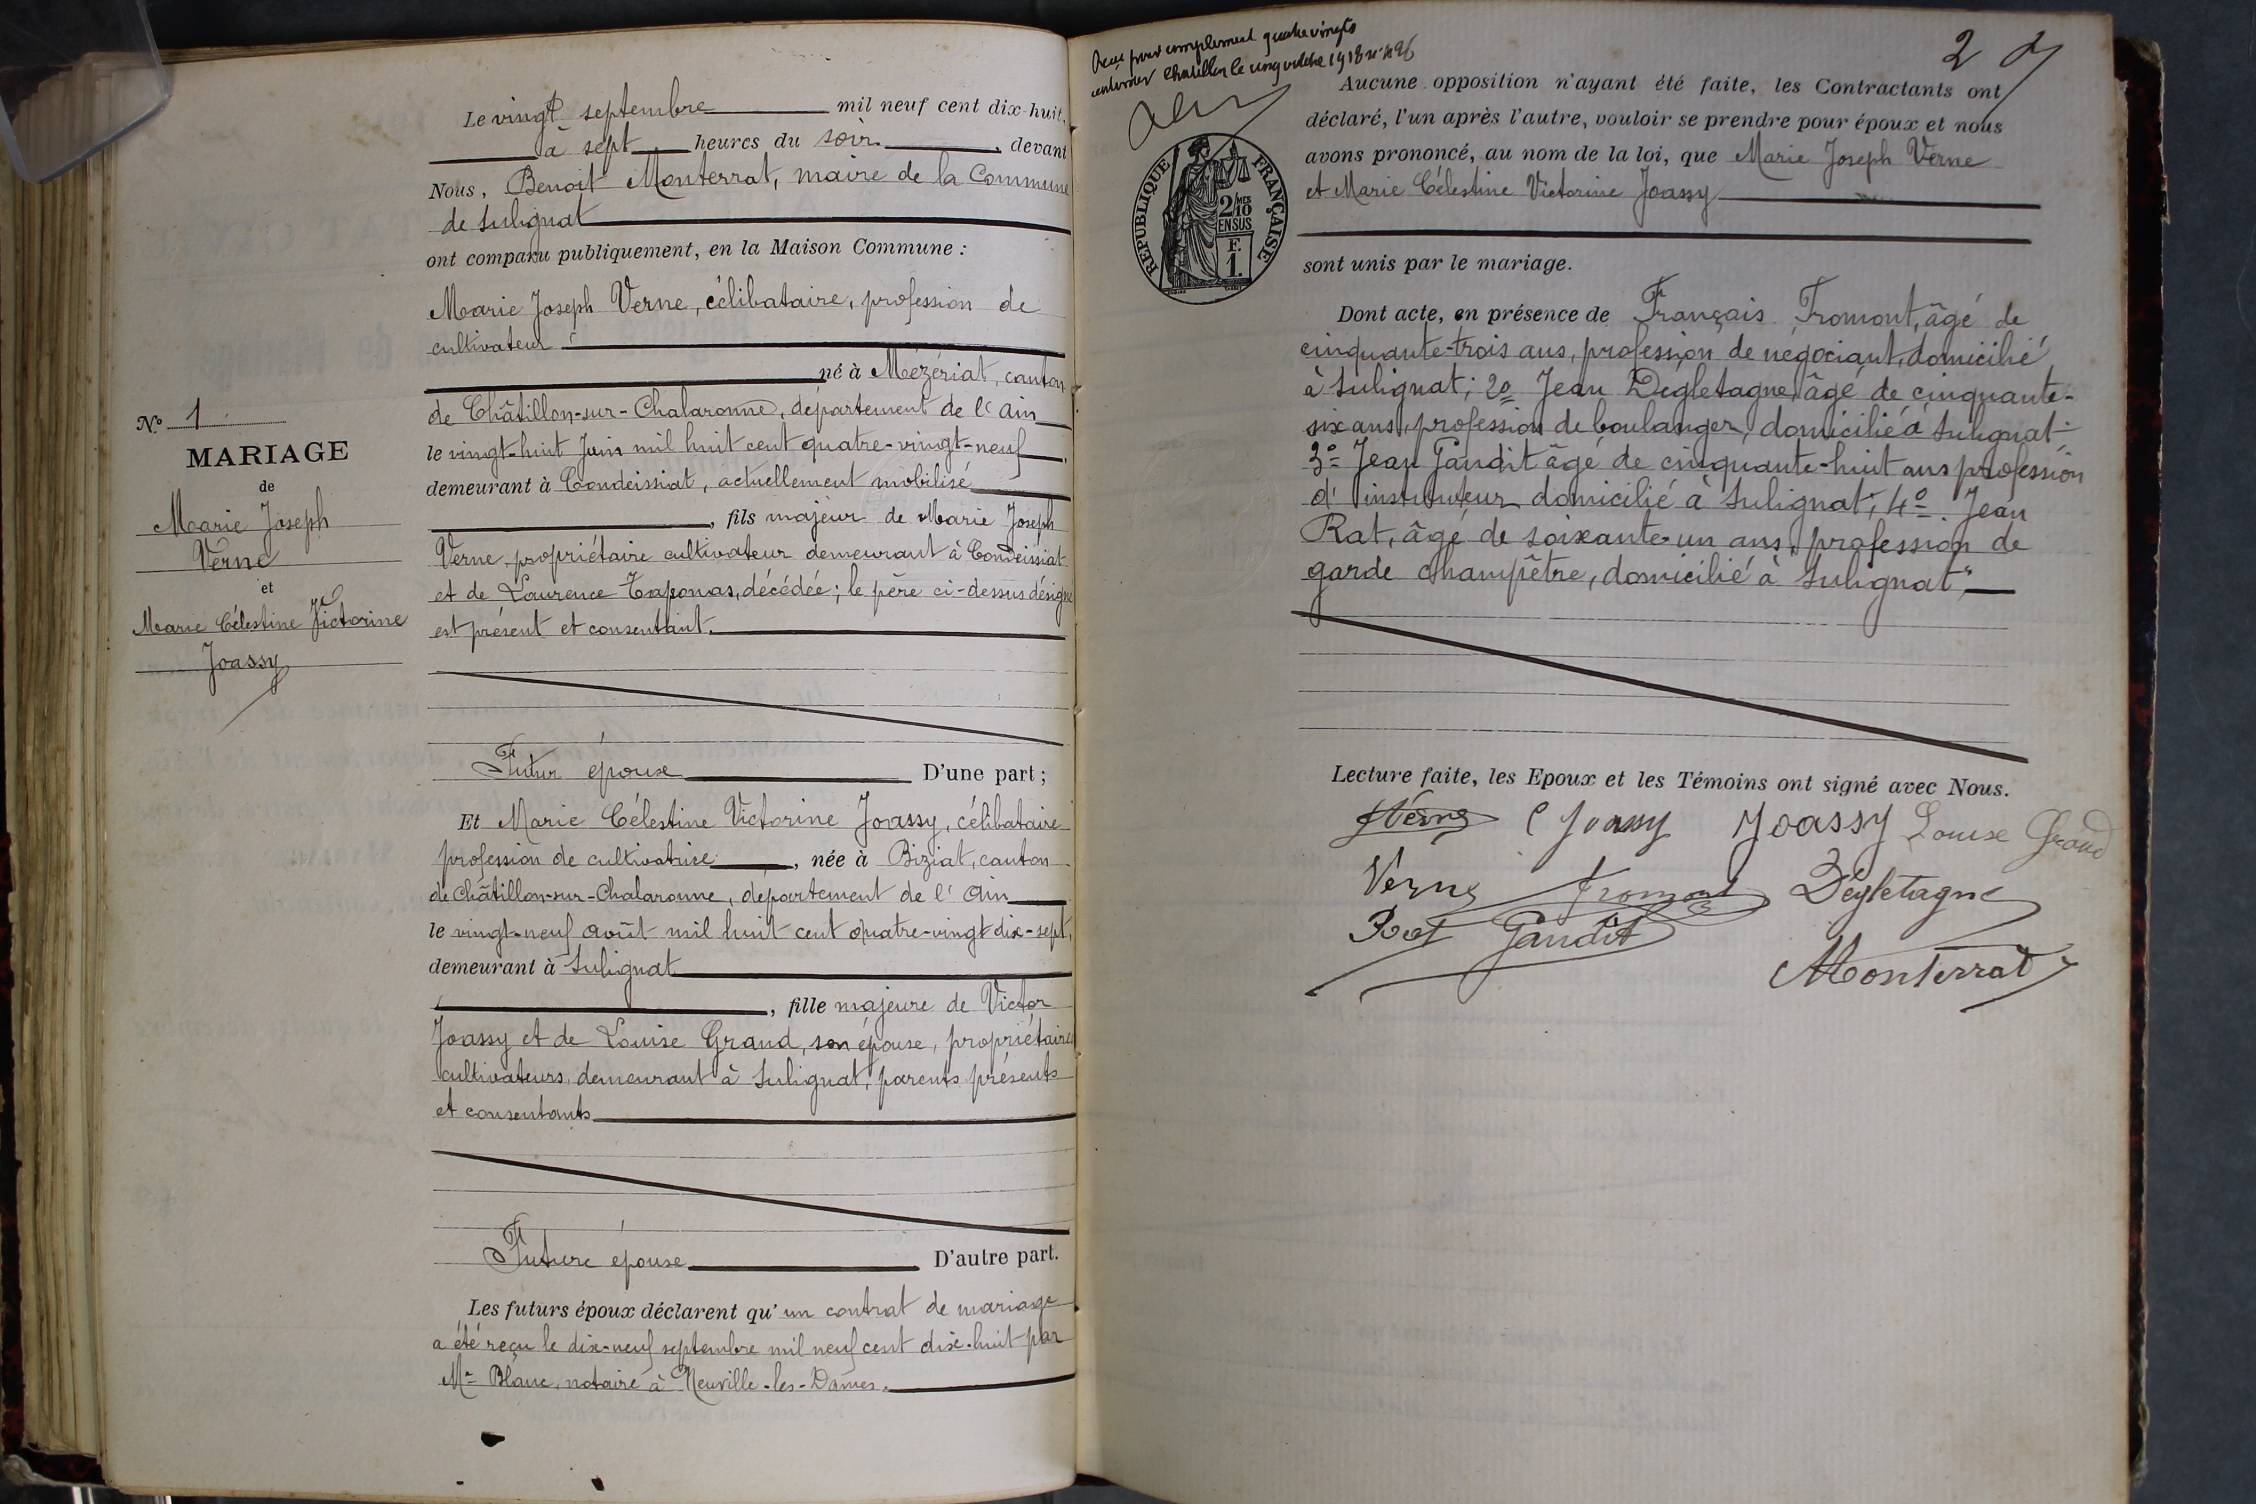 Le vingt septembre mil neuf cent dix-huit,
à sept heures du soir, devant
Nous, Benoit Monterrat, maire de la Commune
de Sulignat
ont comparu publiquement, en la Maison Commune :
Marie Joseph Verne, célibataire, profession de
cultivateur
né à Mézériat, canton
de Châtillon-sur-Chalaronne, département de l'Ain
le vingt-huit Juin mil huit cent quatre-vingt-neuf,
demeurant à Condeissiat, actuellement mobilisé
, fils majeur de Marie Joseph
Verne, propriétaire cultivateur demeurant à Condeissiat
et de Laurence Taponas, décédée ; le père ci-dessus désigné
est présent et consentant.
Futur épouse D'une part ;
Et Marie Célestine Victorine Joassy, célibataire
profession de cultivatrice, née à Biziat, canton
de Châtillon-sur-Chalaronne, département de l'Ain
le vingt-neuf août mil huit cent quatre-vingt dix-sept,
demeurant à Sulignat
, fille majeure de Victor
Joassy et de Louise Grand, son épouse, propriétaires
cultivateurs, demeurant à Sulignat, parents présents
et consentants
Future épouse D'autre part.
Les futurs époux déclarent qu'un contrat de mariage
a été reçu le dix-neuf septembre mil neuf cent dix-huit par
Me Blanc, notaire à Neuville-les-Dames.
No 1
MARIAGE
de
Marie Joseph
Verne
et
Marie Célestine Victorine
Joassy
pour complément quatre vingts
Chatillon le cinq 1918
RÉPUBLIQUE FRANÇAISE
2/10MES
EN SUS
F.
1.
2
Aucune opposition n'ayant été faite, les Contractants ont
déclaré, l'un après l'autre, vouloir se prendre pour époux et nous
avons prononcé, au nom de la loi, que Marie Joseph Verne
et Marie Célestine Victorine Joassy
sont unis par le mariage.
Dont acte, en présence de François Fromont, âgé de
cinquante-trois ans, profession de négociant, domicilié
à Sulignat ; 2o Jean Dégletagne, âgé de cinquante-
six ans, profession de boulanger, domicilié à Sulignat ;
3o Jean Gaudit âgé de cinquante-huit ans profession
d'instituteur domicilié à Sulignat ; 4o Jean
Rat, âgé de soixante-un ans, profession de
garde champêtre, domicilié à Sulignat
Lecture faite, les Epoux et les Témoins ont signé avec Nous.
JVerne C Joassy Joassy Louise Grand
Verne Fromont Dégletagne
Rat Gaudit
Monterrat